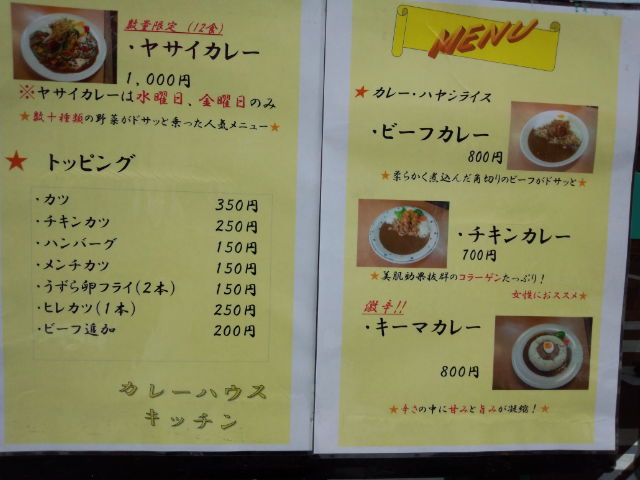 数量限定 (12食)
・ヤサイカレー
1,000円
※ヤサイカレーは水曜日、金曜日のみ
★数十種類の野菜がドサッと乗った人気メニュー★
★ トッピング
・カツ 350円
・チキンカツ 250円
・ハンバーグ 150円
・メンチカツ 150円
・うずら卵フライ(2本) 150円
・ヒレカツ(1本) 250円
・ビーフ追加 200円
カレーハウス
キッチン
MENU
★ カレー・ハヤシライス
・ビーフカレー
800円
★柔らかく煮込んだ角切りのビーフがドサッと★
・チキンカレー
700円
★美肌効果抜群のコラーゲンたっぷり!
女性におススメ★
激辛!!
・キーマカレー
800円
★辛さの中に甘みと旨みが凝縮!★